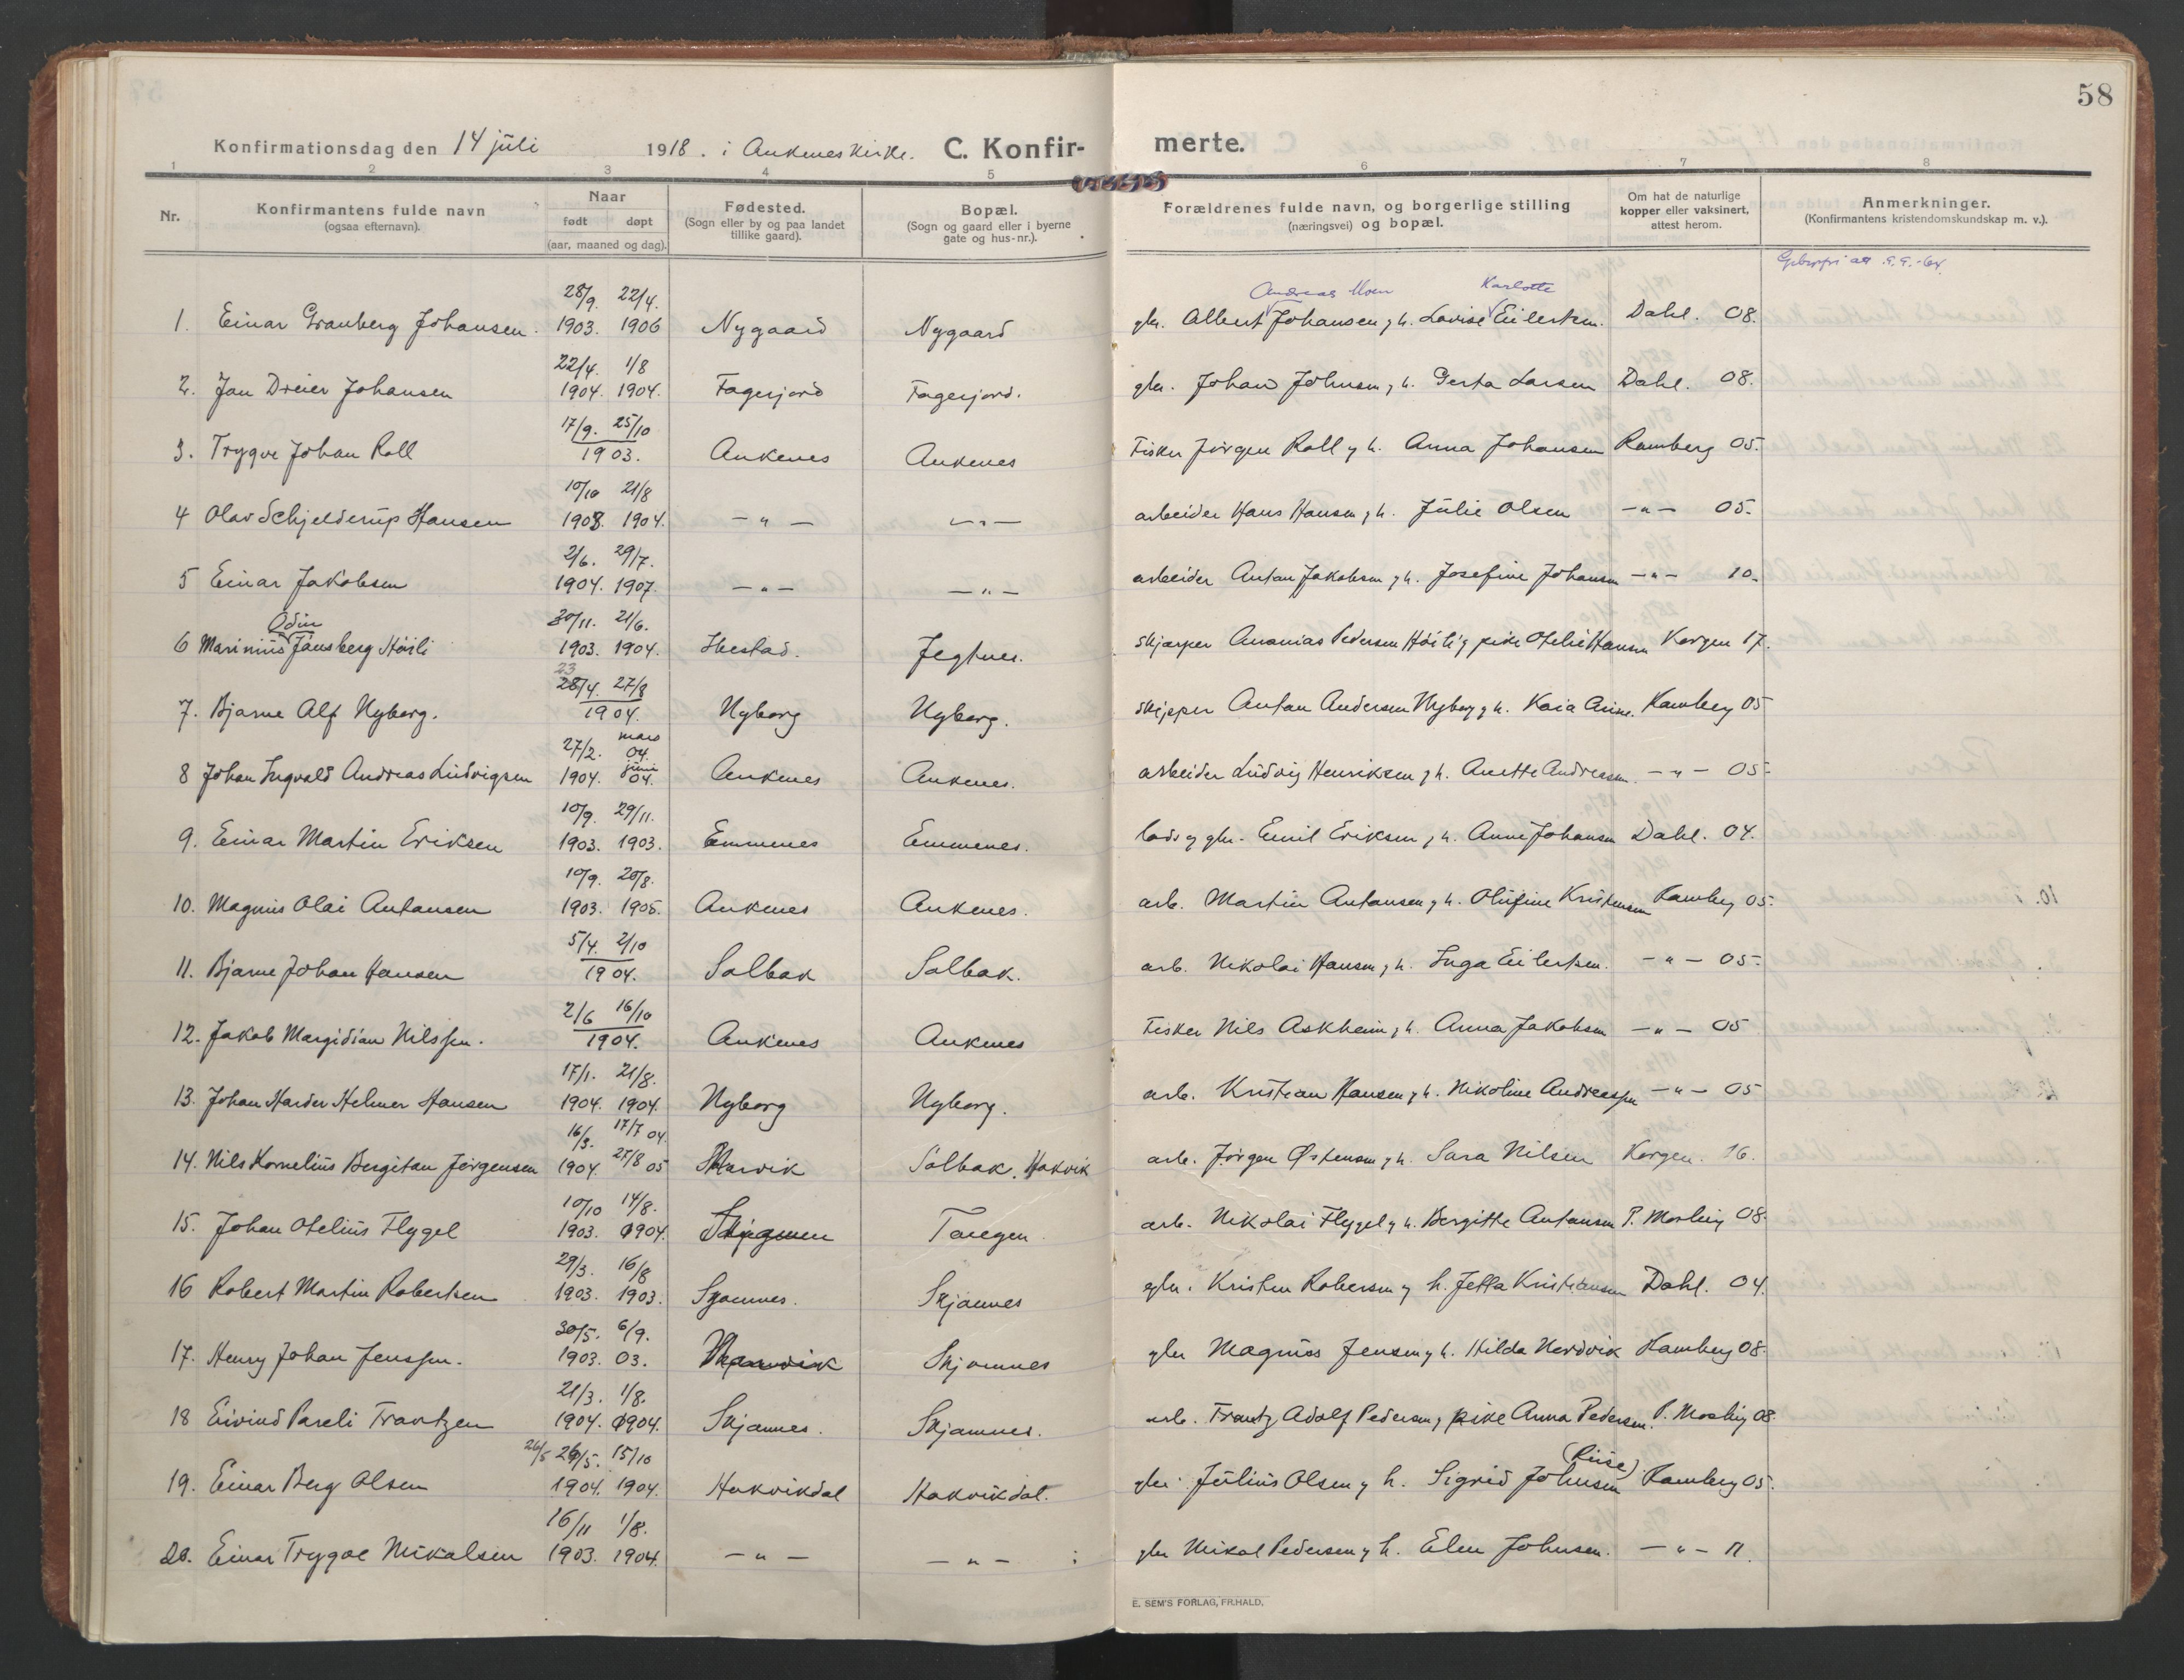 58
Konfirmationsdag den 14 juli 1918. i Ankenes kirke. C. Konfirmerte.
1 2 3 4 5 6 7 8
Nr.
Konfirmantens fulde navn
(ogsaa efternavn).
Naar
født døpt
(aar, maaned og dag).
Fødested.
(Sogn eller by og paa landet
tillike gaard).
Bopæl.
(Sogn og gaard eller i byerne
gate og hus-nr.).
Forældrenes fulde navn, og borgerlige stilling
(næringsvei) og bopæl.
Om hat de naturlige
kopper eller vaksinert,
attest herom.
Anmerkninger.
(Konfirmantens kristendomskundskap m. v.).
28/9. 22/4. Andreas Moen Karlotte
1. Einar Granberg Johansen. 1903. 1906 Nygaard Nygaard gbr. Albert Johansen, h. Lovise Eilertsen. Dahl. 08.
22/4. 1/8
2. Jan Dreier Johansen 1904. 1904. Fagerjord Fagerjord. gbr. Johan Johnsen, h. Gerta Larsen Dahl. 08.
17/9. 25/10
3. Trygve Johan Roll 1903. Ankenes Ankenes Fisker Jørgen Roll og h. Anna Johansen Ramberg 05.
10/10 21/8
4 Olav Schjelderup Hansen 1903. 1904. -"- -"- arbeider Hans Hansen, h. Julie Olsen -"- 05.
2/6. 29/7.
5 Einar Jakobsen 1904. 1907. -"- -"- arbeider Anton Jakobsen, h. Josefine Johansen -"- 10.
Odin 30/11. 21/6.
6 Marinius Jansberg Høili 1903. 1904. Ibestad. Jegtnes. Skjærper Ananias Pedersen Høili og pike Otelie Hansen Korgen 17.
23
28/4. 27/8
7. Bjarne Alf Nyborg. 1904. Nyborg Nyborg. Skipper Anton Andersen Nyborg og h. Kaia Ramberg 05
27/2. mars 04.
8 Johan Ingvald Andreas Ludvigsen 1904. juni 04. Ankenes Ankenes. arbeider Ludvig Henriksen, h. Anette Andreassen. -"- 05.
10/9. 29/11.
9. Einar Martin Eriksen 1903. 1903. Emmenes Emmenes. lods og gbr. Emil Eriksen, h. Anne Johansen Dahl. 04.
10/9. 20/8.
10. Magnus Olai Antonsen 1903. 1905. Ankenes Ankenes. arb. Martin Antonsen, h. Olufine Kristensen Ramberg 05.
5/4. 2/10
11. Bjarne Johan Hansen 1904. Solbak Solbak. arb. Nikolai Hansen, h. Inga Eilertsen. -"- 05.
2/6 16/10
12. Jakob Margidian Nilssen. 1904. Ankenes Ankenes Fisker Nils Askheim, h. Anna Jakobsen -"- 05
17/1. 21/8.
13. Johan Harder Helmer Hansen 1904. 1904. Nyborg Nyborg. arb. Kristian Hansen, h. Nikoline Andreassen -"- 05
16/3. 17/7 04.
14. Nils Kornelius Bergiton Jørgensen 1904. 27/8 05 Solbak. Hakvik arb. Jørgen Østensen, h. Sara Nilsen Korgen. 16.
10/10 14/8.
15. Johan Otelius Flygel 1903. 1904. Tangen arb. Nikolai Flygel og h. Bergitte Antonsen P. Mosling 08.
29/3. 16/8
16 Robert Martin Robertsen 1903. 1903. Sjaamnes. Skjomnes gbr. Kristen Robersen og h. Jetta Kristiansen Dahl. 04.
30/5. 6/9.
17. Henry Johan Jenssen. 1903. 03. Skjomnes gbr Magnus Jensen, h. Hilda Nordvik Ramberg 08.
21/3. 1/8.
18 Eivind Pareli Frantzen 1904. 1904. Skjomnes. Skjomnes. arb. Frantz Adolf Pedersen, pike Anna Pedersen. P. Mosling 08.
26/5 26/5. 15/10 (Riise)
19. Einar Berg Olsen 1904. 1904. Hakvikdal Hakvikdal. gbr. Julius Olsen og h. Sigrid Johnsen Ramberg 05.
16/11 1/8.
20. Einar Trygve Mikalsen 1903. 1904. -"- -"- gbr Mikal Pedersen og h. Elen Johnsen. -"- 11.
E. SEM'S FORLAG, FR.HALD.